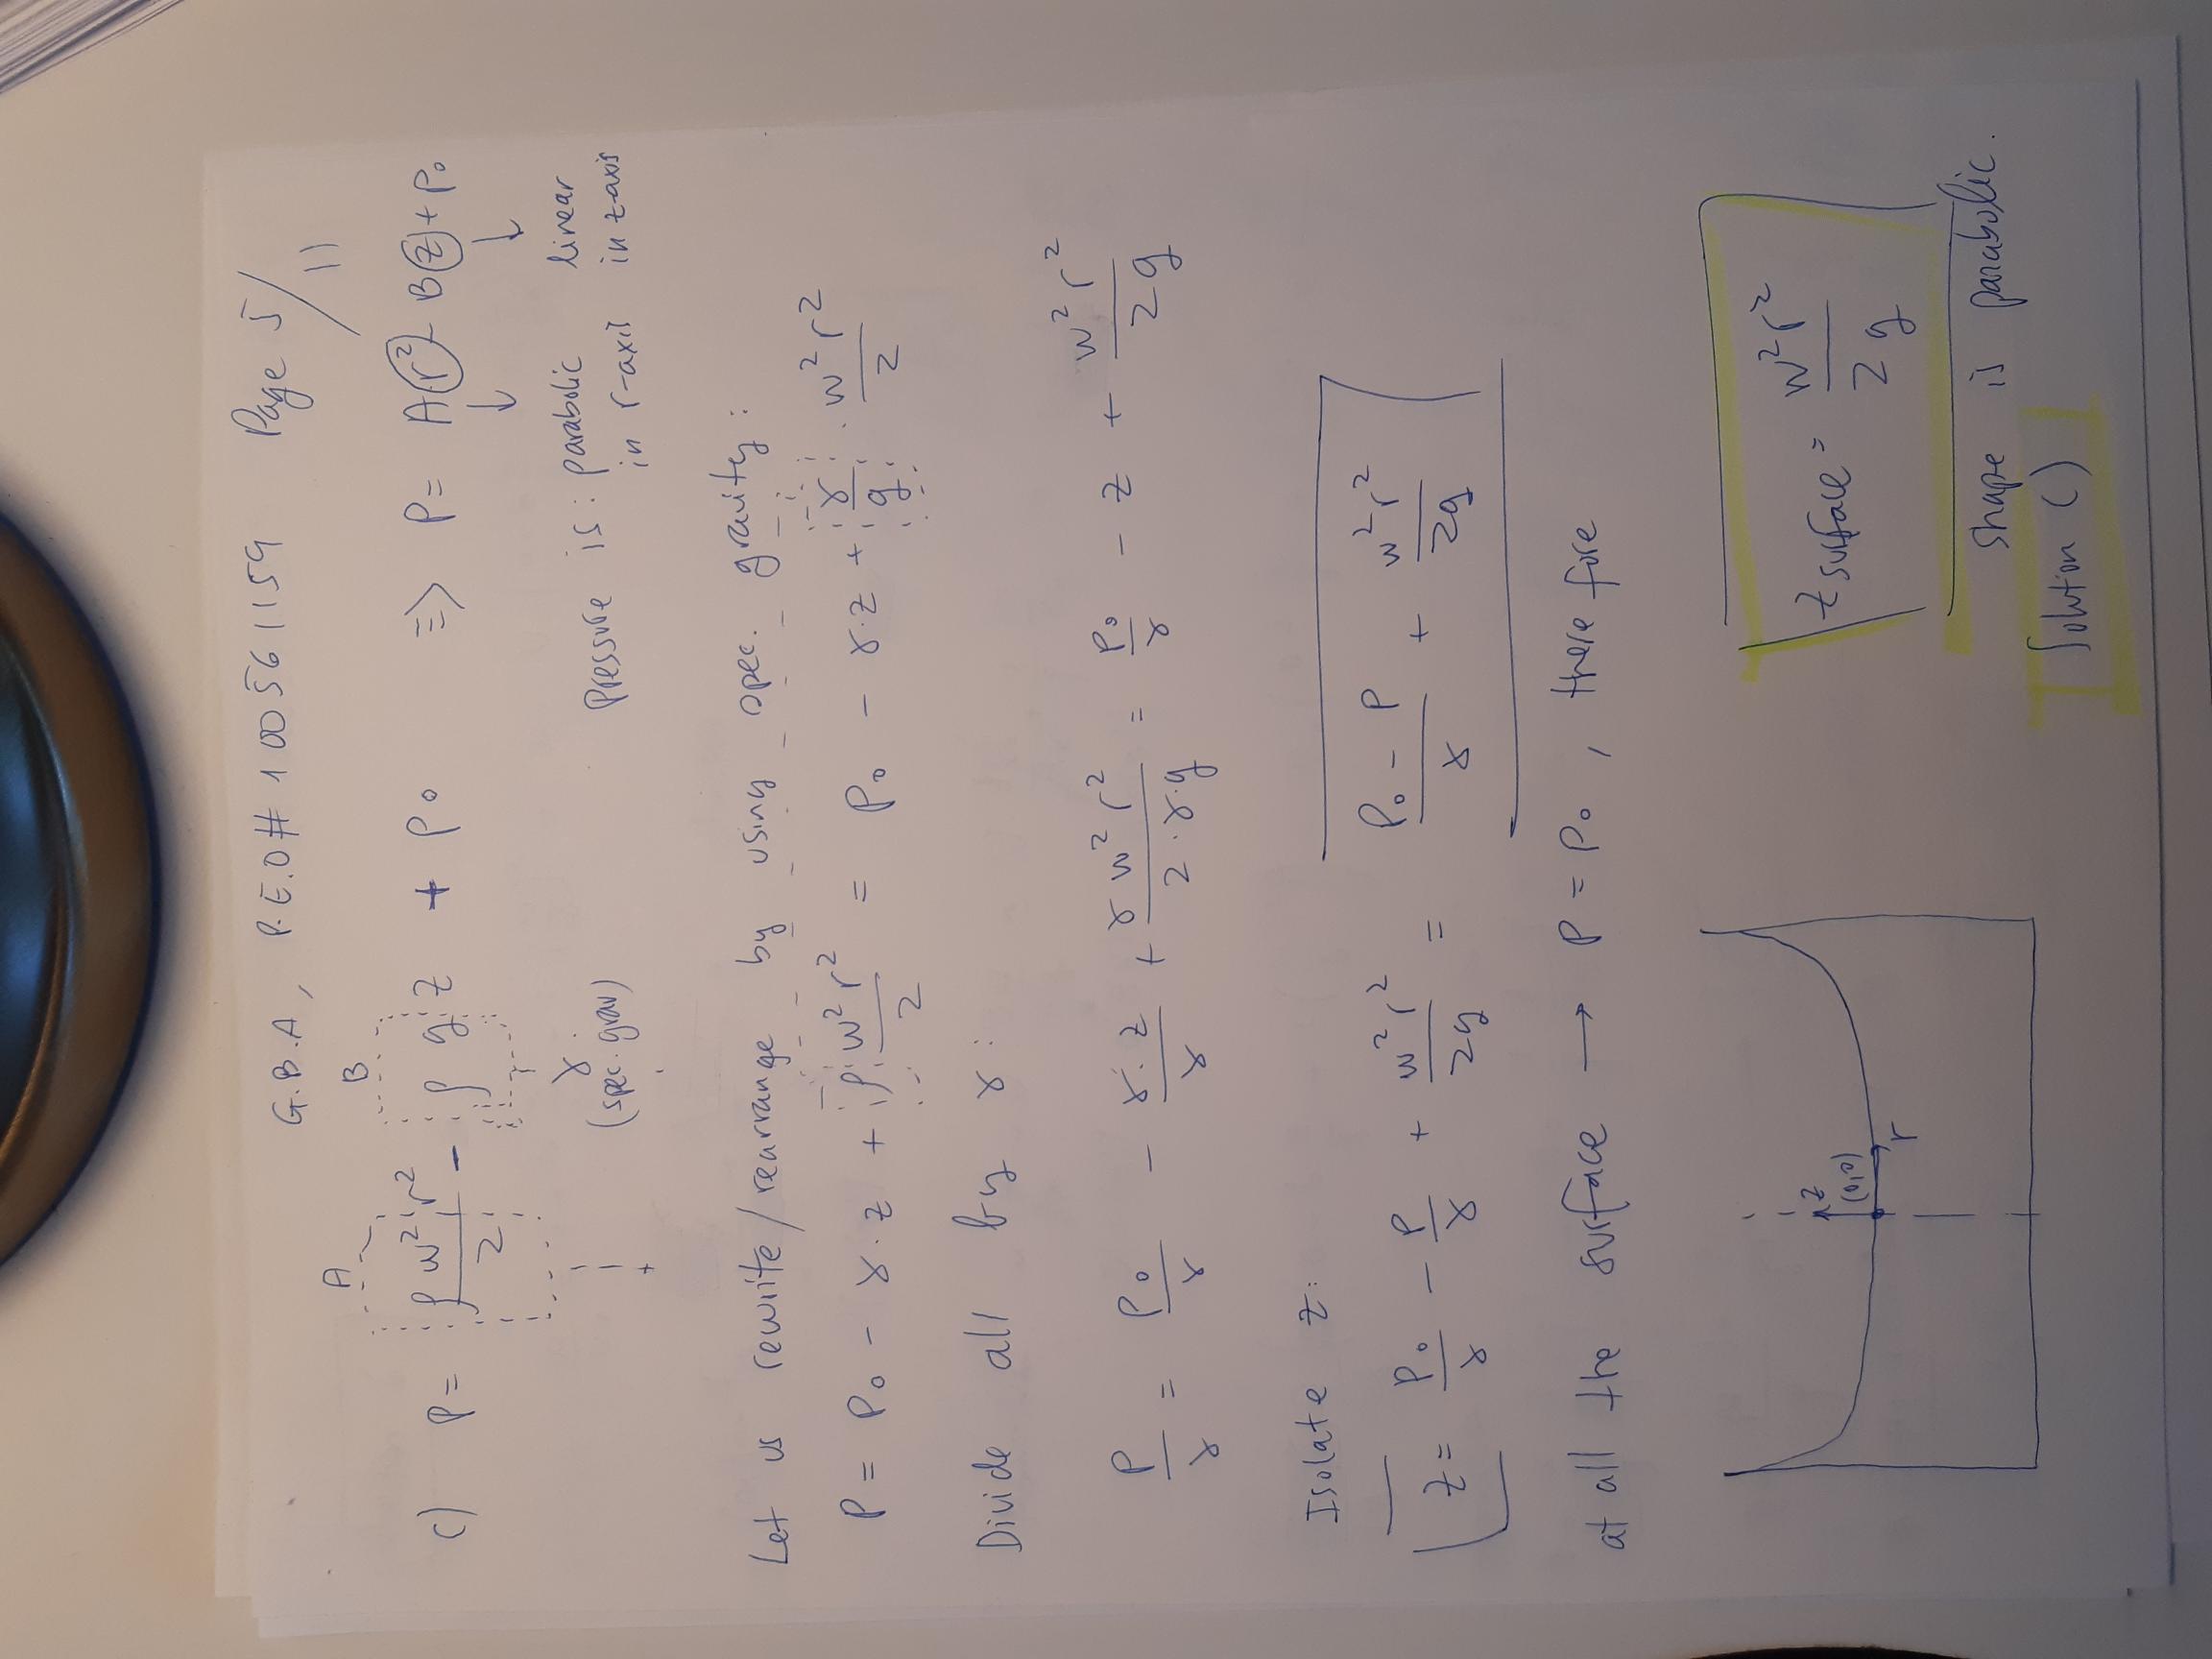 G.B.A, P.E.O# 100561159 Page 5/11
A B
c) P= ρw²r²/2 - ρgz + Po => P= Ar² - Bz + Po
γ
(spec. grav)
+
Pressure is: parabolic in r-axis linear in z-axis
Let us rewrite/rearrange by using spec. gravity:
P = Po - γ.z + ρ w²r²/2 = Po - γ.z + γ/g . w²r²/2
Divide all by γ:
P/γ = Po/γ - γ.z/γ + γw²r²/2.γ.g = Po/γ - z + w²r²/2g
Isolate z:
z= Po/γ - P/γ + w²r²/2g = Po - P/γ + w²r²/2g
at all the surface → P = Po, therefore
z
(0,0)
r
z surface = w²r²/2g
shape is parabolic.
Solution C)